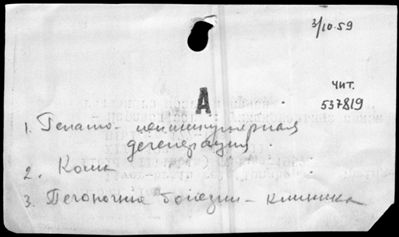 3/10-59
чит.
537819
А
1. Гепато-лентикулярная
дегенерация.
2. Кома
3. Печоночные болезни – клиника